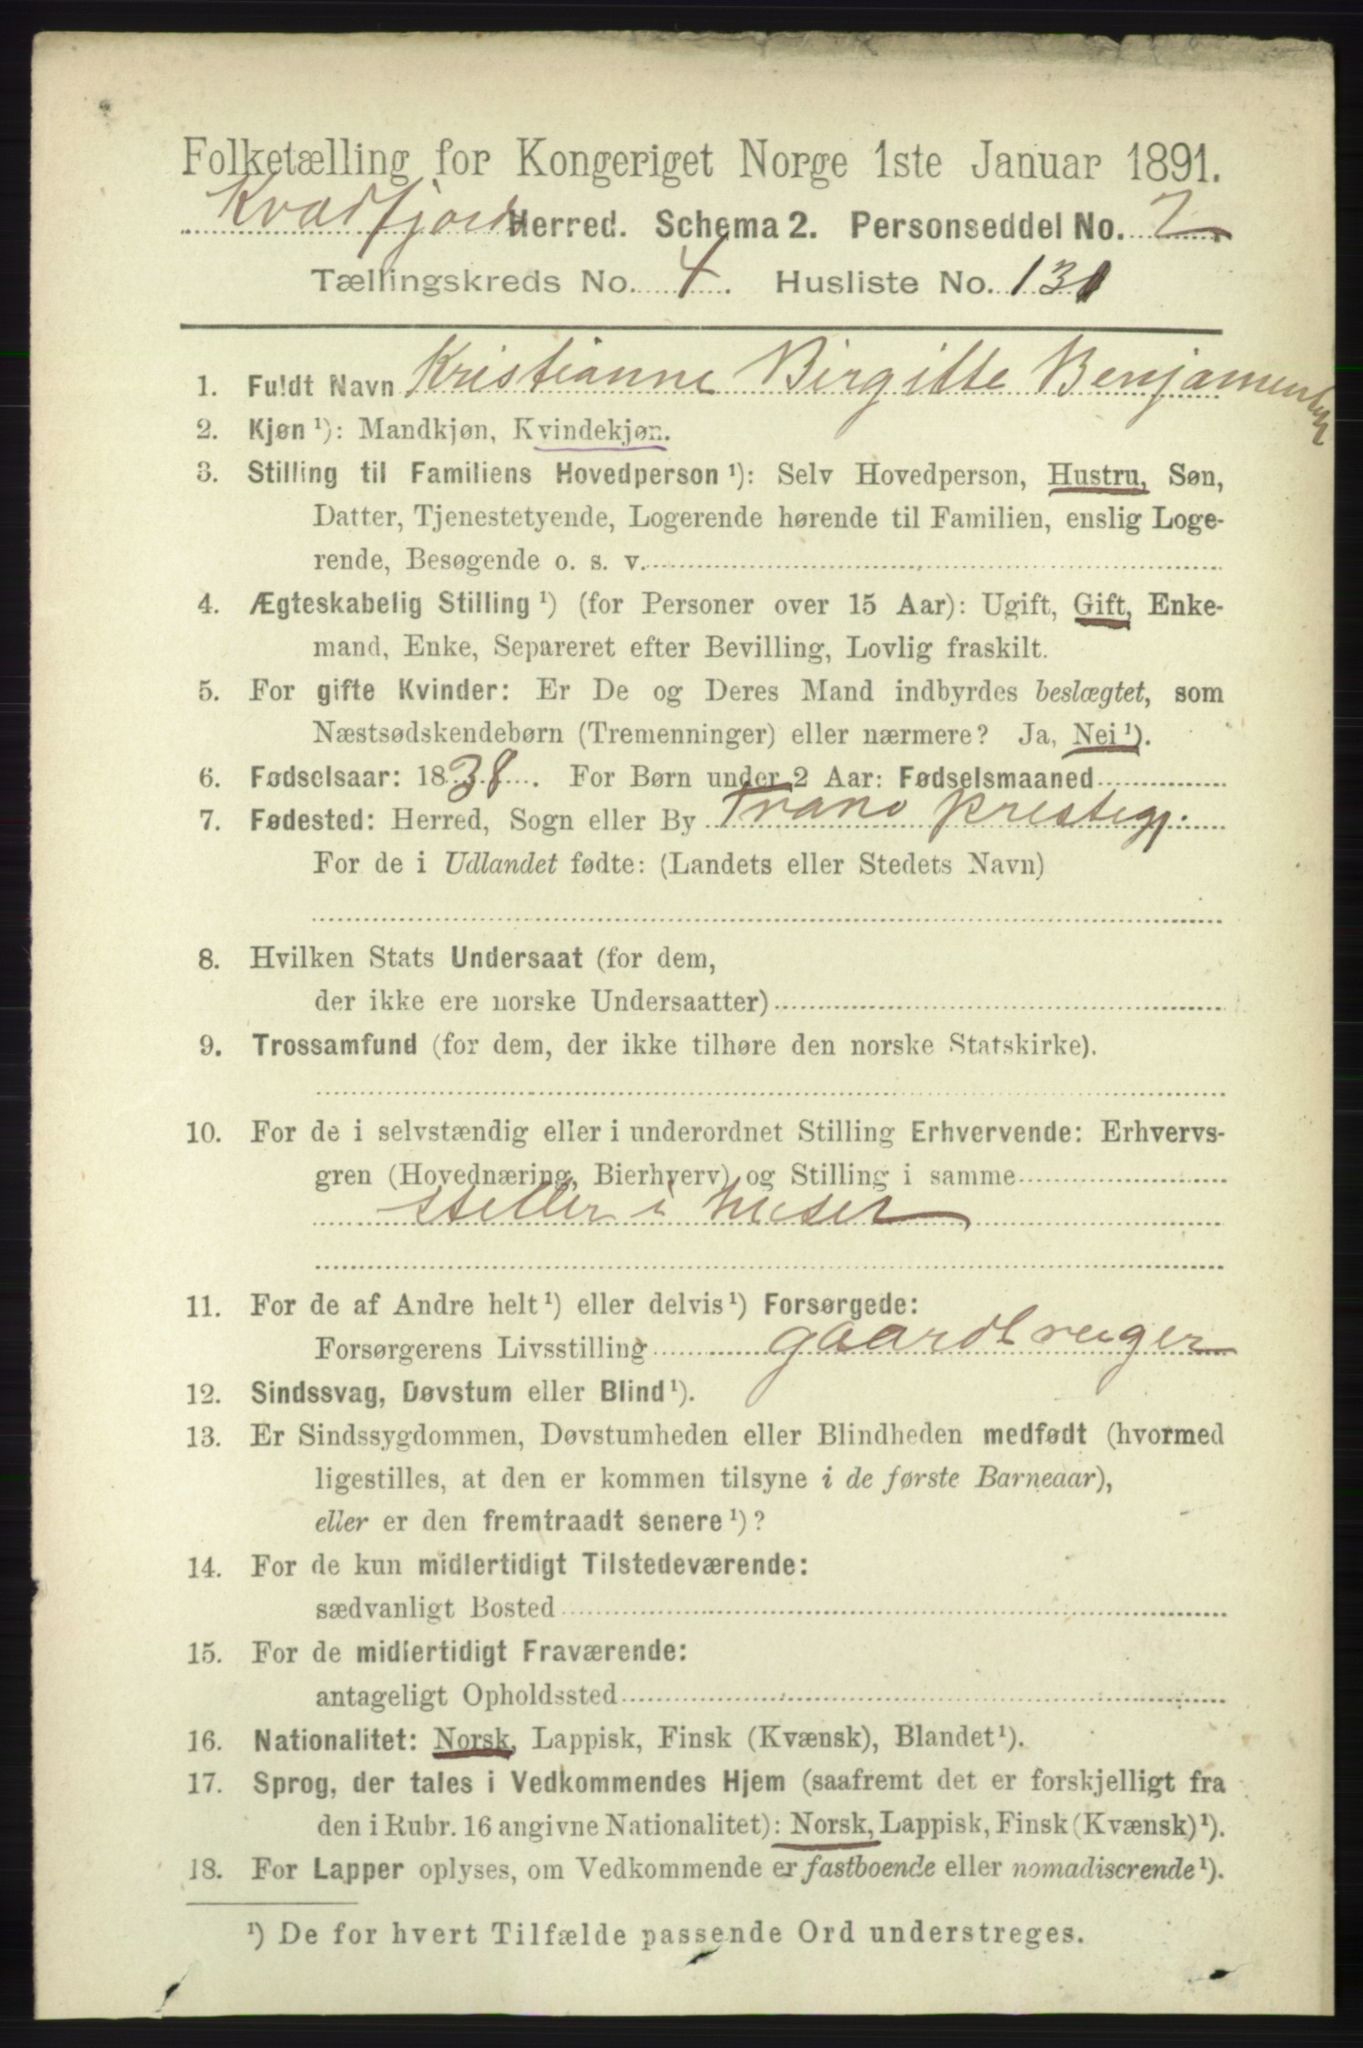 Folketælling for Kongeriget Norge 1ste Januar 1891.
Kvædfjord Herred. Schema 2. Personseddel No. 2
Tællingskreds No. 4. Husliste No. 131
1. Fuldt Navn Kristianne Birgitte Benjamensen
2. Kjøn ¹): Mandkjøn, Kvindekjøn.
3. Stilling til Familiens Hovedperson ¹): Selv Hovedperson, Hustru, Søn,
Datter, Tjenestetyende, Logerende hørende til Familien, enslig Loge-
rende, Besøgende o. s. v.
4. Ægteskabelig Stilling ¹) (for Personer over 15 Aar): Ugift, Gift, Enke-
mand, Enke, Separeret efter Bevilling, Lovlig fraskilt.
5. For gifte Kvinder: Er De og Deres Mand indbyrdes beslægtet, som
Næstsødskendebørn (Tremenninger) eller nærmere? Ja, Nei ¹).
6. Fødselsaar: 1838. For Børn under 2 Aar: Fødselsmaaned
7. Fødested: Herred, Sogn eller By Trano prestegj.
For de i Udlandet fødte: (Landets eller Stedets Navn)
8. Hvilken Stats Undersaat (for dem,
der ikke ere norske Undersaatter)
9. Trossamfund (for dem, der ikke tilhøre den norske Statskirke).
10. For de i selvstændig eller i underordnet Stilling Erhvervende: Erhvervs-
gren (Hovednæring, Bierhverv) og Stilling i samme
steller i huset
11. For de af Andre helt ¹) eller delvis ¹) Forsørgede:
Forsørgerens Livsstilling gaardbruger
12. Sindssvag, Døvstum eller Blind ¹).
13. Er Sindssygdommen, Døvstumheden eller Blindheden medfødt (hvormed
ligestilles, at den er kommen tilsyne i de første Barneaar),
eller er den fremtraadt senere ¹)?
14. For de kun midlertidigt Tilstedeværende:
sædvanligt Bosted
15. For de midlertidigt Fraværende:
antageligt Opholdssted
16. Nationalitet: Norsk, Lappisk, Finsk (Kvænsk), Blandet ¹).
17. Sprog, der tales i Vedkommendes Hjem (saafremt det er forskjelligt fra
den i Rubr. 16 angivne Nationalitet): Norsk, Lappisk, Finsk (Kvænsk) ¹).
18. For Lapper oplyses, om Vedkommende er fastboende eller nomadiserende ¹).
¹) De for hvert Tilfælde passende Ord understreges.